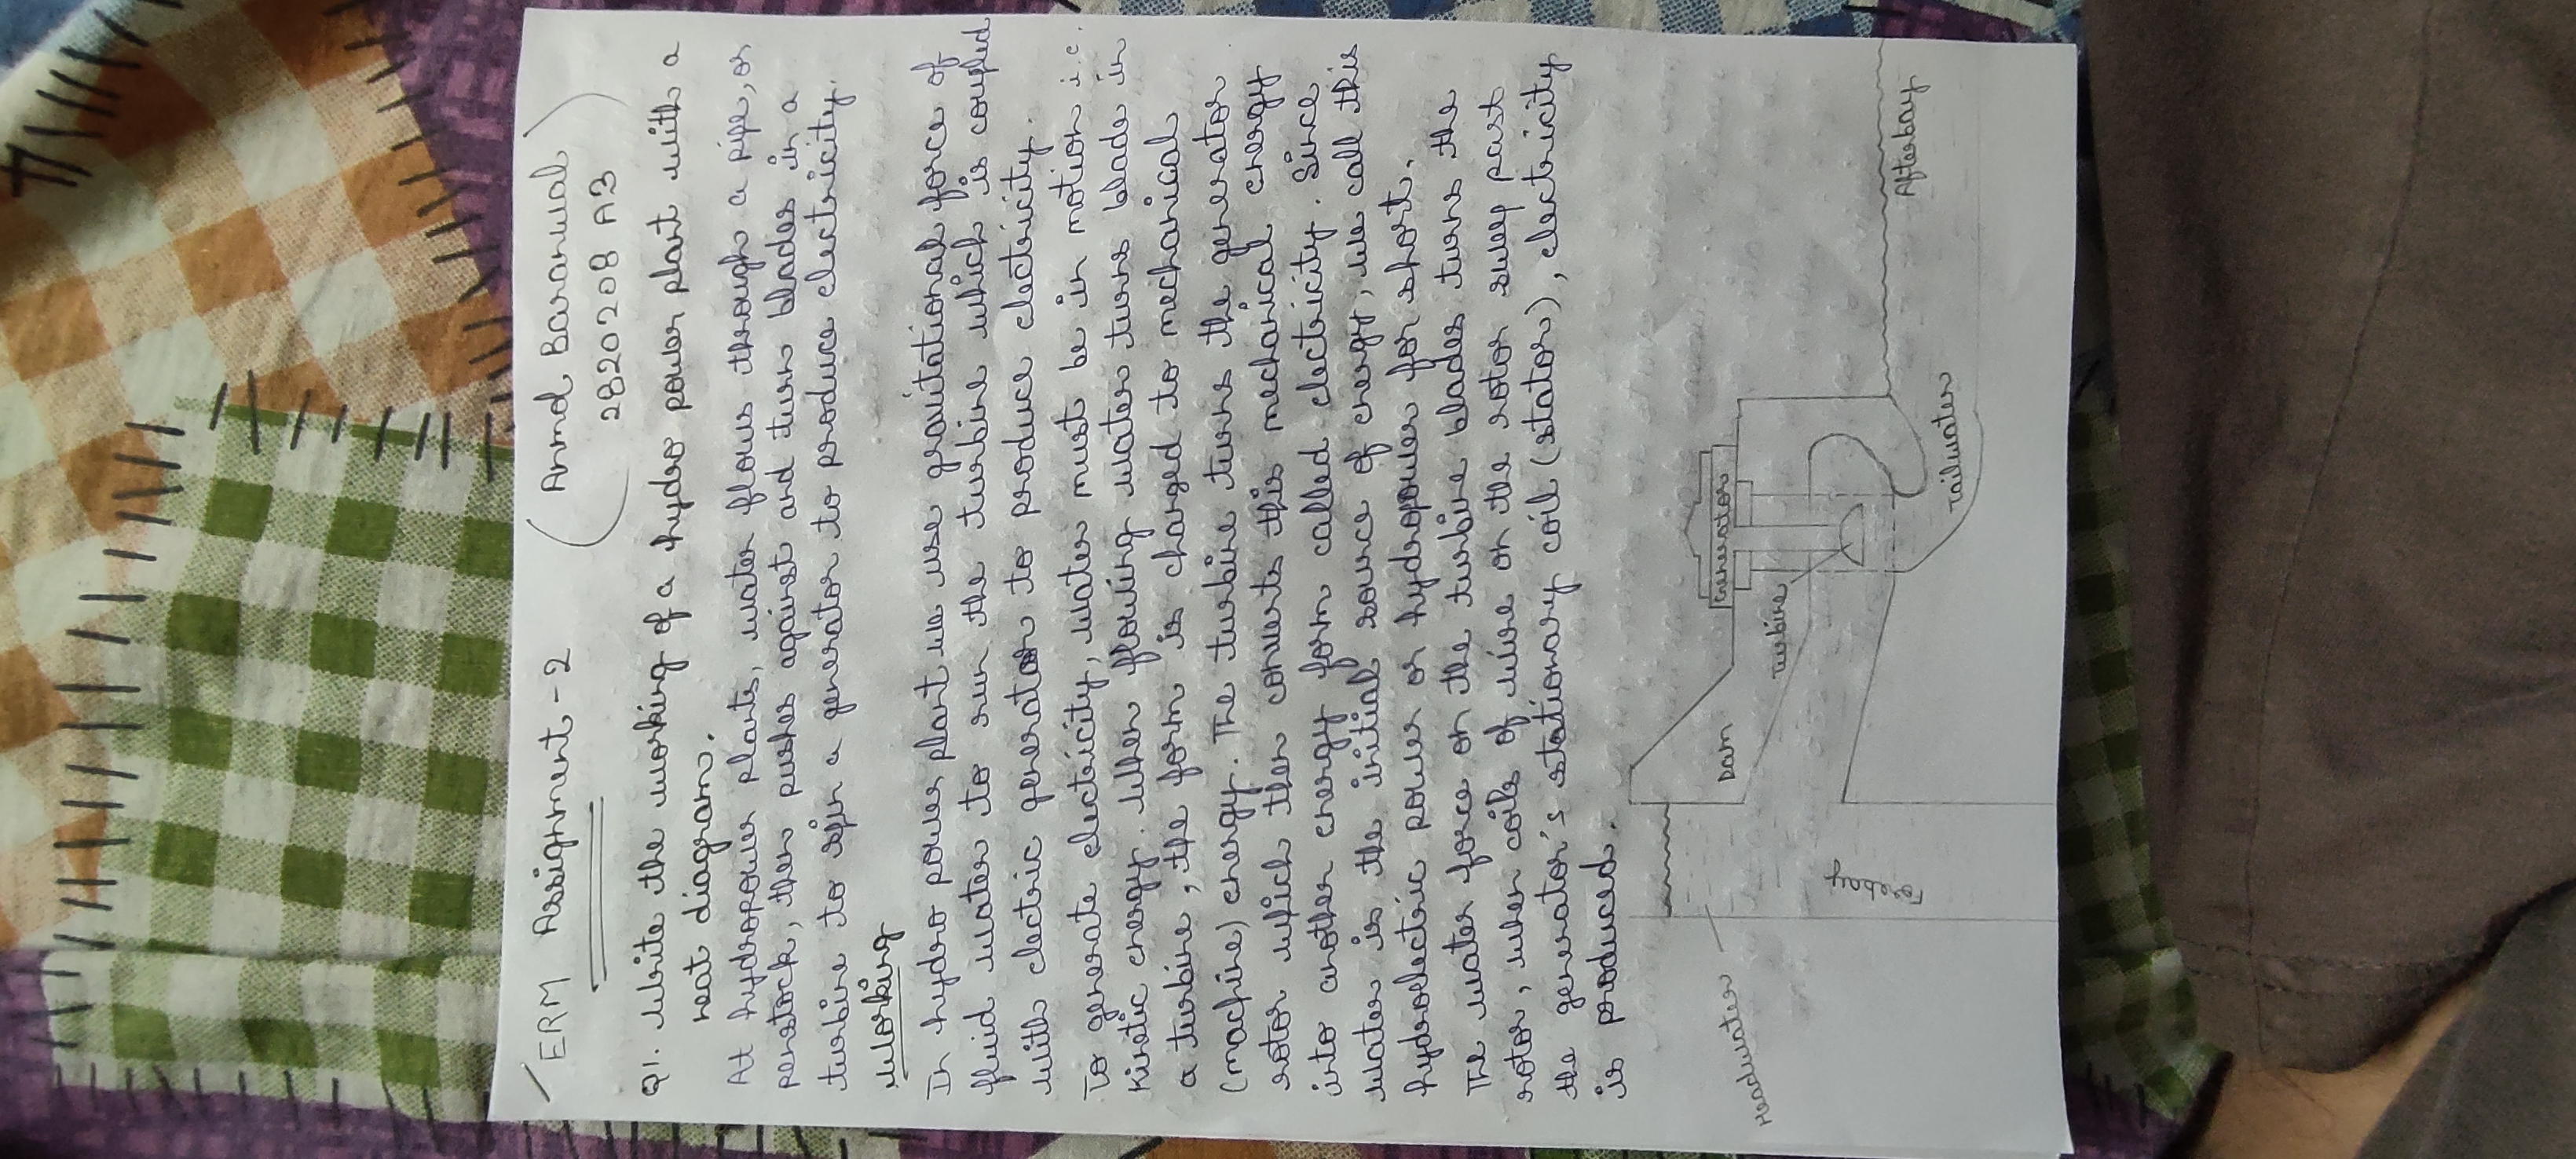 ERM Assignment - 2
Anmol Baranwal
2820208 A3
Q1. Write the working of a hydro power plant with a
neat diagram.
At hydropower plants, water flows through a pipe, or
penstock, then pushes against and turn blades in a
turbine to spin a generator to produce electricity.
Working
In hydro power plant we use gravitational force of
fluid water to run the turbine which is coupled
with electric generator to produce electricity.
To generate electricity, water must be in motion i.e.
kinetic energy. When flowing water turns blade in
a turbine, the form is changed to mechanical
(machine) energy. The turbine turns the generator
rotor which then converts this mechanical energy
into another energy form called electricity. Since
water is the initial source of energy, we call this
hydroelectric power or hydropower for short.
The water force on the turbine blades turns the
rotor, when coils of wire on the rotor sweep past
the generator's stationary coil (stator), electricity
is produced.
Headwater
Dam
Generator
Turbine
Forebay
Afterbay
Tailwater